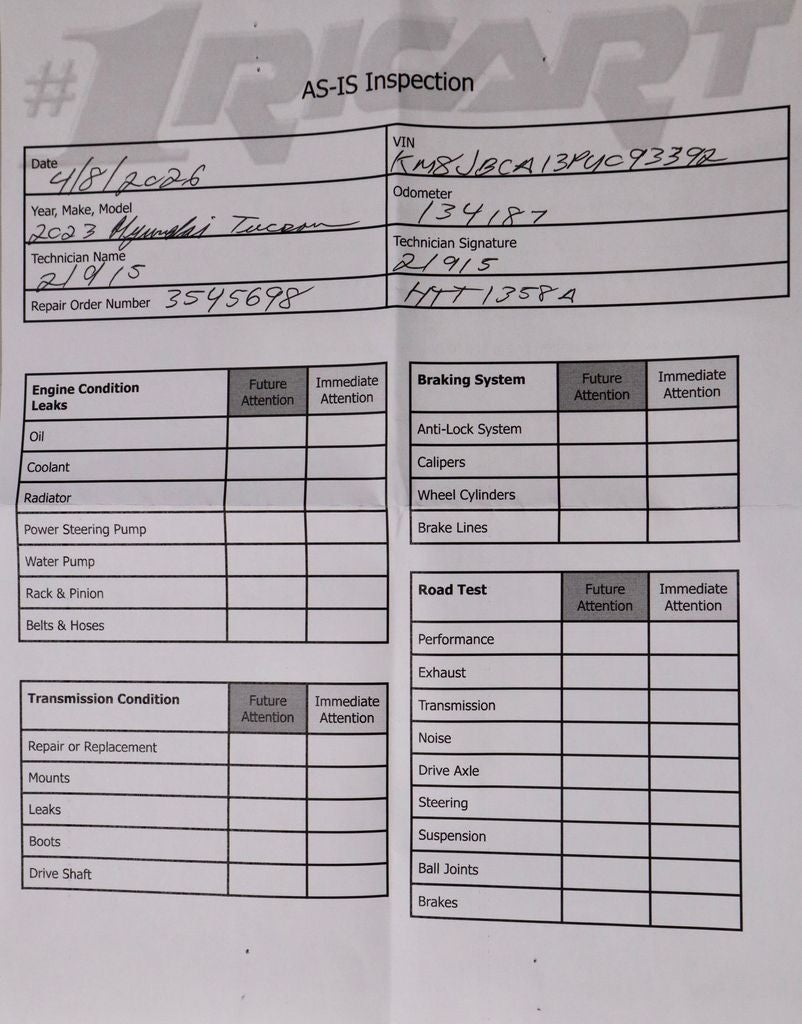 #1RICART
AS-IS Inspection
Date 4/8/2026
VIN KM8JBCA13PUC93392
Year, Make, Model 2023 Hyundai Tucson
Odometer 134187
Technician Name 21915
Technician Signature 21915
Repair Order Number 3545698
HTT1358A
Engine Condition Leaks Future Attention Immediate Attention
Oil
Coolant
Radiator
Power Steering Pump
Water Pump
Rack & Pinion
Belts & Hoses
Transmission Condition Future Attention Immediate Attention
Repair or Replacement
Mounts
Leaks
Boots
Drive Shaft
Braking System Future Attention Immediate Attention
Anti-Lock System
Calipers
Wheel Cylinders
Brake Lines
Road Test Future Attention Immediate Attention
Performance
Exhaust
Transmission
Noise
Drive Axle
Steering
Suspension
Ball Joints
Brakes